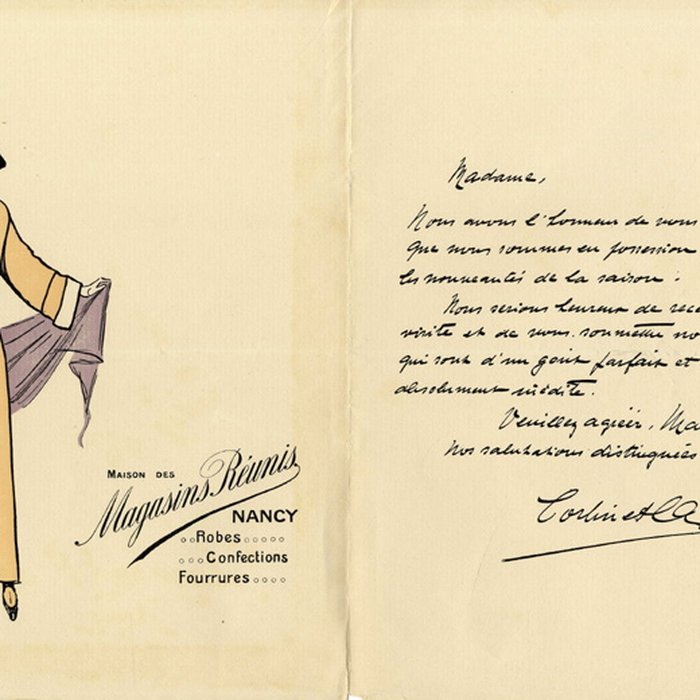 MAISON DES
Magasins Réunis
NANCY
Robes
Confections
Fourrures
Madame,
Nous avons l'honneur de vous
que nous sommes en possession
les nouveautés de la saison.
Nous serions heureux de rece
visite et de vous soumettre no
qui sont d'un goût parfait et
absolument inédite.
Veuillez agréer, Ma
Nos salutations distinguées